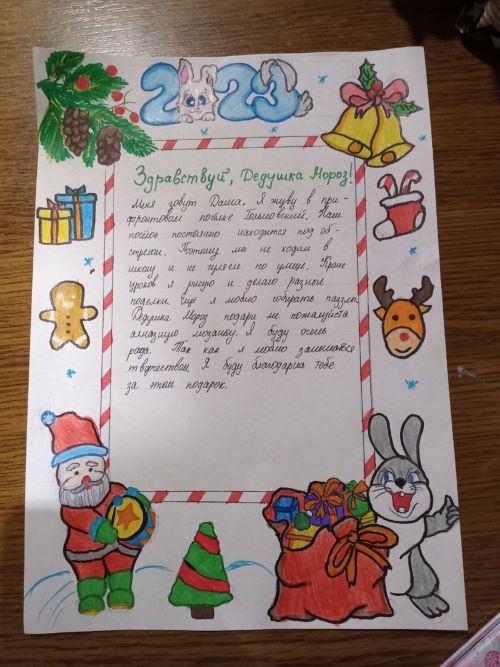 2023
Здравствуй, Дедушка Мороз!
Меня зовут Даша. Я живу в при-
фронтовом посёлке Гольмовский. Наш
посёлок постоянно находится под об-
стрелом. Поэтому мы не ходим в
школу и не гуляем по улице. Кроме
уроков я рисую и делаю разные
поделки. Ещё я люблю собирать паззлы.
Дедушка Мороз подари мне пожалуйста
алмазную мозаику. Я буду очень
рада. Так как я люблю заниматься
творчеством. Я буду благодарна тебе
за этот подарок.